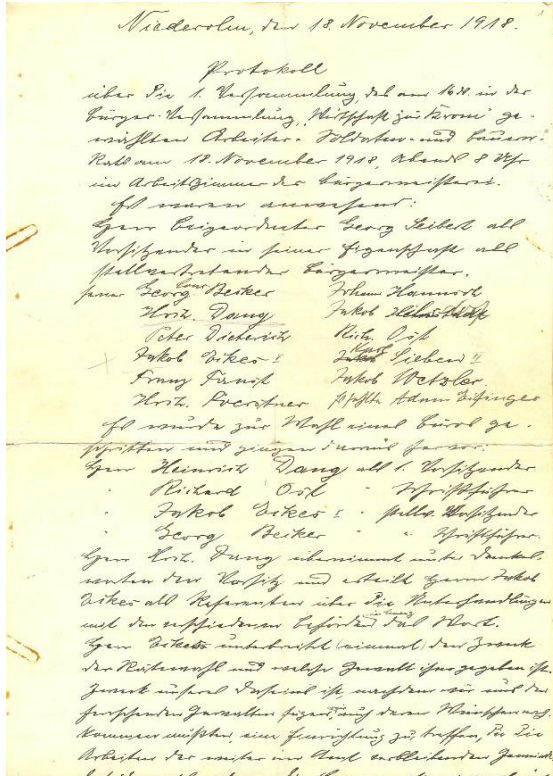 Niederolm, den 18. November 1918.
Protokoll
über die 1. Versammlung, des am 16. d. in der
Bürger-Versammlung, Wirtschaft zur Krone ge-
wählten Arbeiter- Soldaten- und Bauern-
Rats am 18. November 1918, Abends 8 Uhr
im Arbeitszimmer der Bürgermeisterei.
Es waren anwesend:
Herr Beigeordneter Georg Seibert als
Vorsitzender in seiner Eigenschaft als
stellvertretender Bürgermeister.
ferner Georg Becker Johann
Hrch. Dang Jakob
Peter Dieterich Rich. Ost
Jakob Eikes I Sieben II
Franz Faust Jakob Wetzler
Hrch. Foerstner es fehlte Adam Eifinger
Es wurde zur Wahl eines Büros ge-
schritten und gingen daraus hervor:
Herr Heinrich Dang als 1. Vorsitzender
" Richard Ost " Schriftführer
" Jakob Eikes I " stellv. Vorsitzender
" Georg Becker " " Schriftführer.
Herr Hrch. Dang übernimmt unter Dankes-
worten den Vorsitz und erteilt Herrn Jakob
Eikes als Referenten über die Unterhandlungen
mit den verschiedenen Behörden das Wort.
Herr Eikes unterbreitet (einmal) den Zweck
der Rätewahl und welche Gewalt ihr gegeben ist.
Zweck unseres Daseins ist, nachdem wir uns den
herrschenden Gewalten fügend, auch deren Wünschen nach-
kommen mußten eine Einrichtung zu treffen, die die
Arbeiten der weiter im Amt verbleibenden